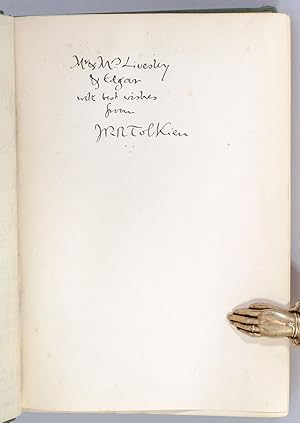 Mr & Mrs Livesley
& Edgar
with best wishes
from
JRRTolkien